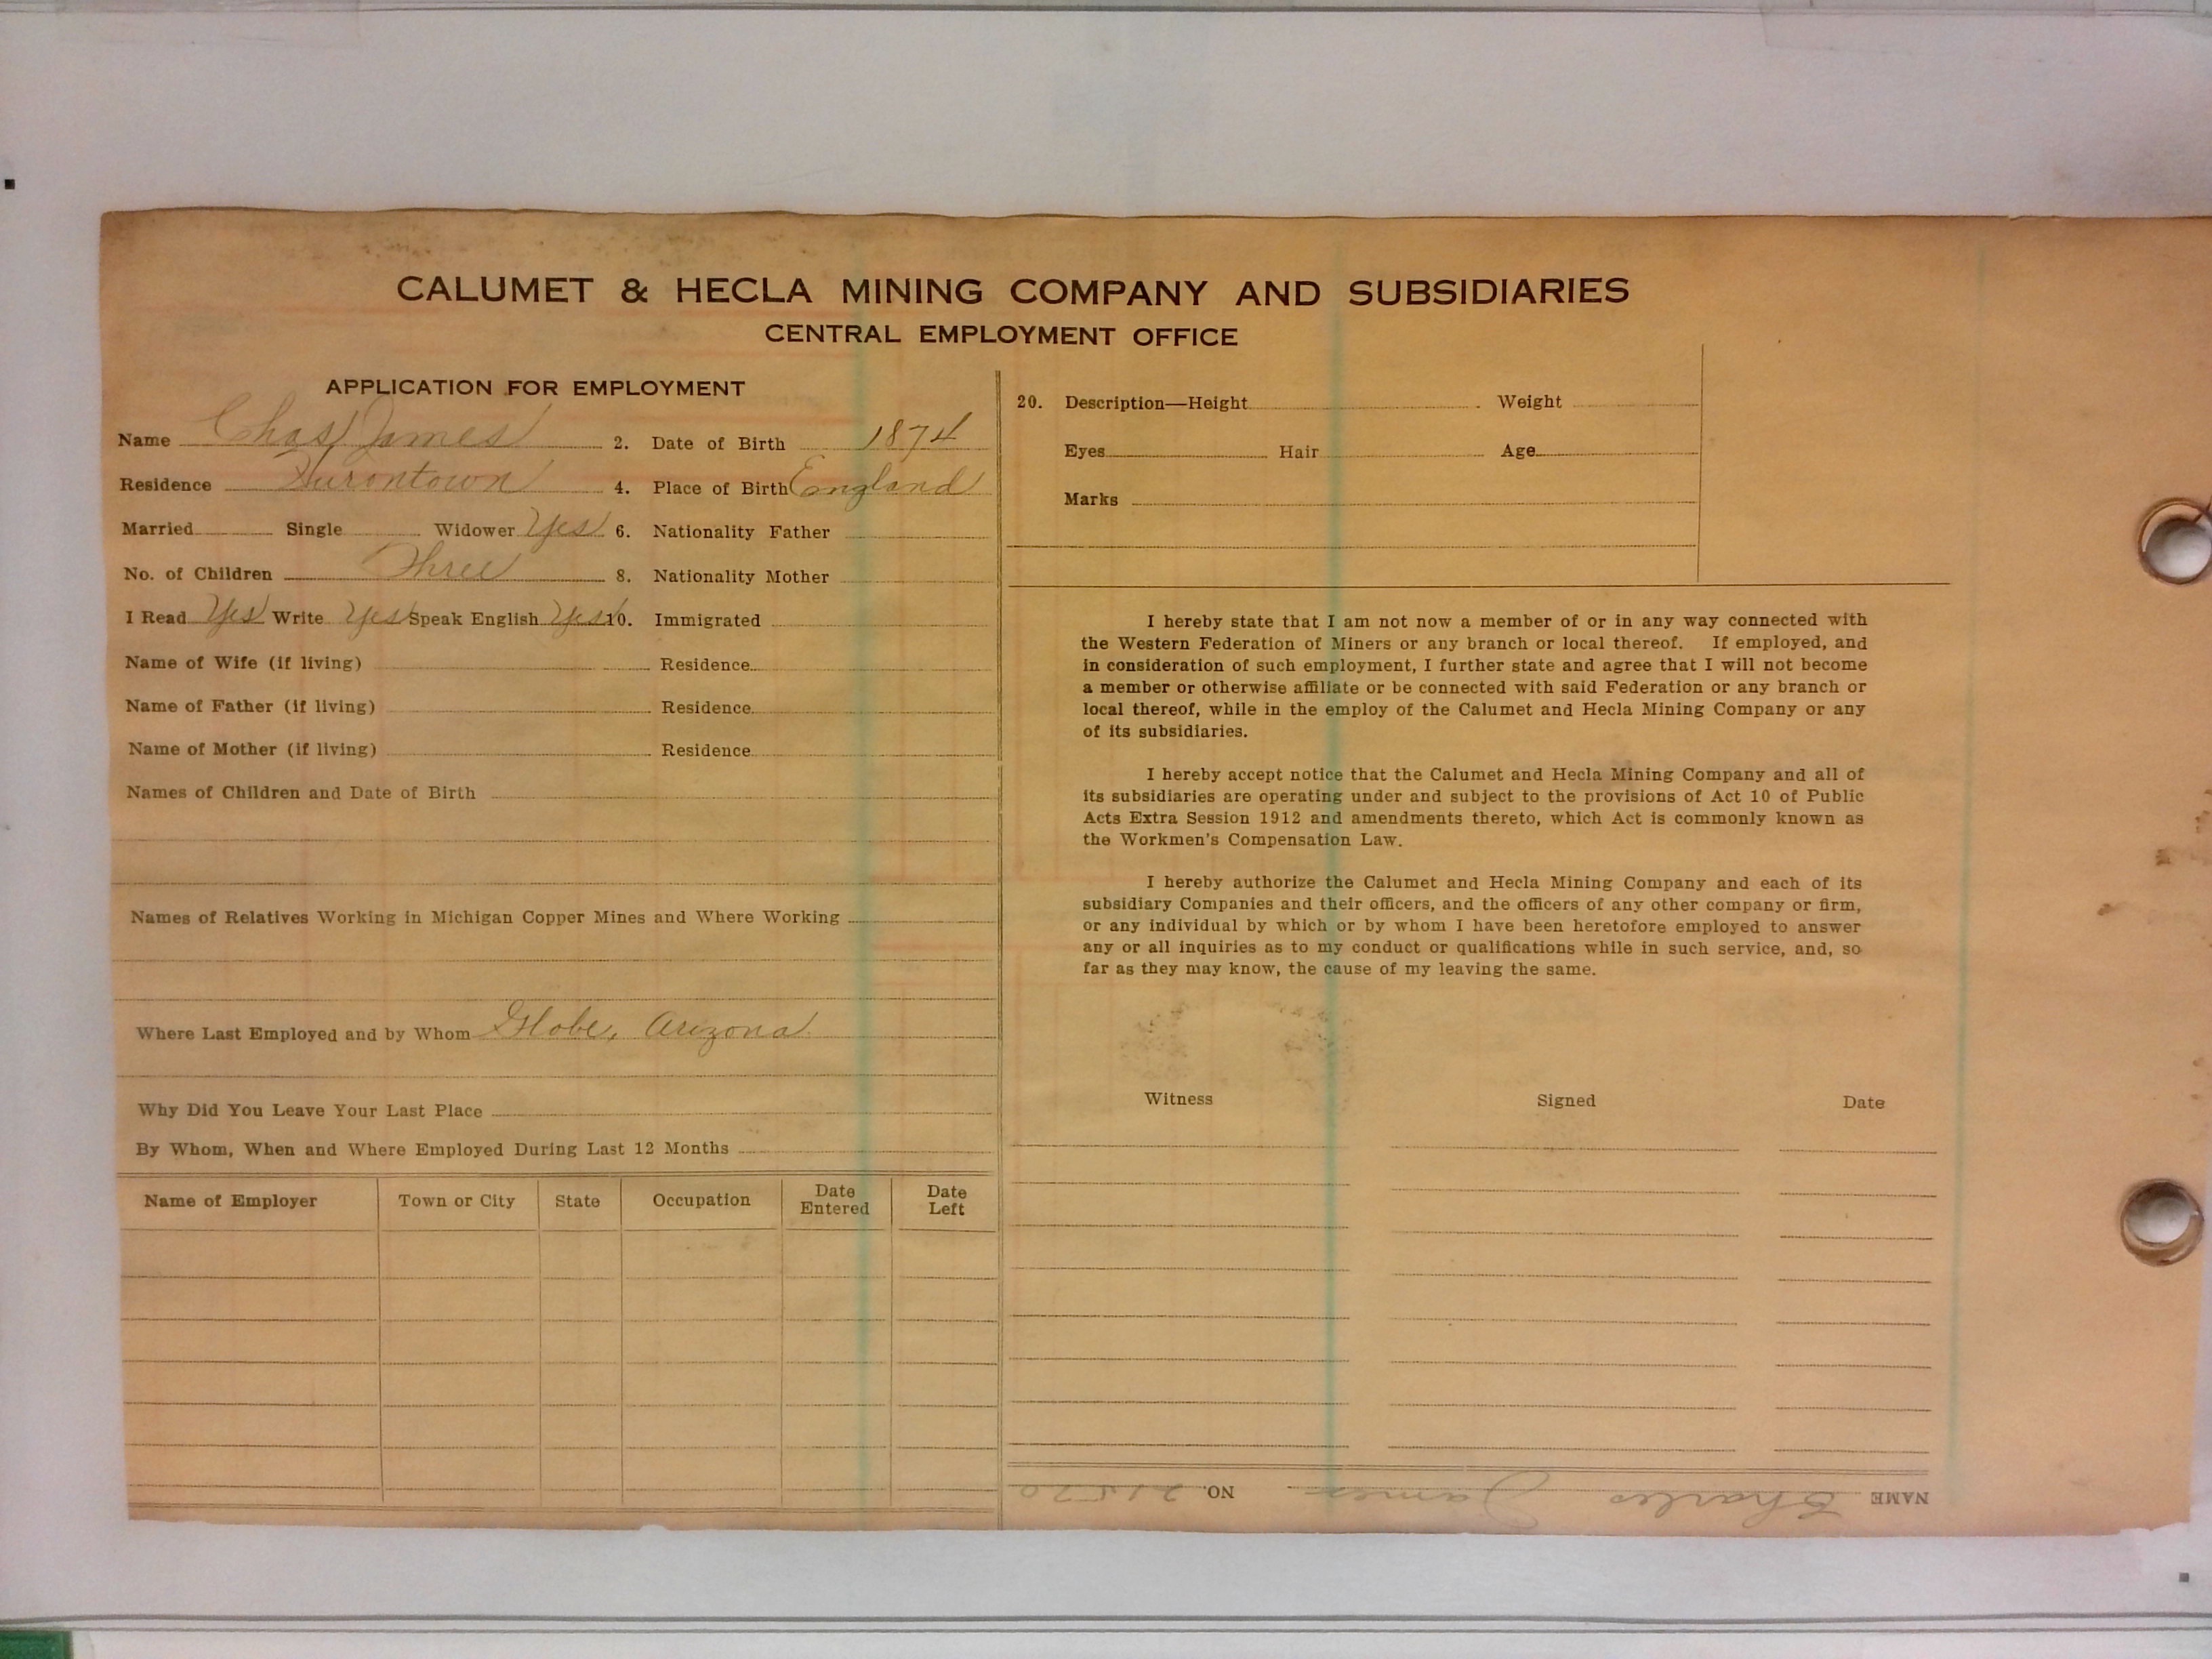 CALUMET & HECLA MINING COMPANY AND SUBSIDIARIES
CENTRAL EMPLOYMENT OFFICE
APPLICATION FOR EMPLOYMENT
Name Chas James 2. Date of Birth 1874
Residence Hurontown 4. Place of Birth England
Married Single Widower Yes 6. Nationality Father
No. of Children Three 8. Nationality Mother
I Read Yes Write Yes Speak English Yes 10. Immigrated
Name of Wife (if living) Residence
Name of Father (if living) Residence
Name of Mother (if living) Residence
Names of Children and Date of Birth
Names of Relatives Working in Michigan Copper Mines and Where Working
Where Last Employed and by Whom Globe, Arizona
Why Did You Leave Your Last Place
By Whom, When and Where Employed During Last 12 Months
Name of Employer Town or City State Occupation Date Entered Date Left
20. Description—Height Weight
Eyes Hair Age
Marks
I hereby state that I am not now a member of or in any way connected with
the Western Federation of Miners or any branch or local thereof. If employed, and
in consideration of such employment, I further state and agree that I will not become
a member or otherwise affiliate or be connected with said Federation or any branch or
local thereof, while in the employ of the Calumet and Hecla Mining Company or any
of its subsidiaries.
I hereby accept notice that the Calumet and Hecla Mining Company and all of
its subsidiaries are operating under and subject to the provisions of Act 10 of Public
Acts Extra Session 1912 and amendments thereto, which Act is commonly known as
the Workmen's Compensation Law.
I hereby authorize the Calumet and Hecla Mining Company and each of its
subsidiary Companies and their officers, and the officers of any other company or firm,
or any individual by which or by whom I have been heretofore employed to answer
any or all inquiries as to my conduct or qualifications while in such service, and, so
far as they may know, the cause of my leaving the same.
Witness Signed Date
NAME Charles James NO.